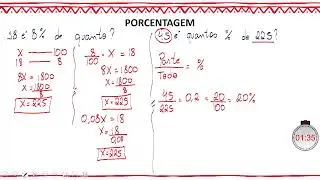 PORCENTAGEM
18 é 8% de quanto?
x — 100
18 — 8
8x = 1800
x = 1800
8
x = 225
8/100 · x = 18
8x = 1800
x = 1800
8
x = 225
0,08x = 18
x = 18
0,08
x = 225
45 é quantos % de 225?
Parte/Todo = %
45/225 = 0,2 = 20/100 = 20%
01:35